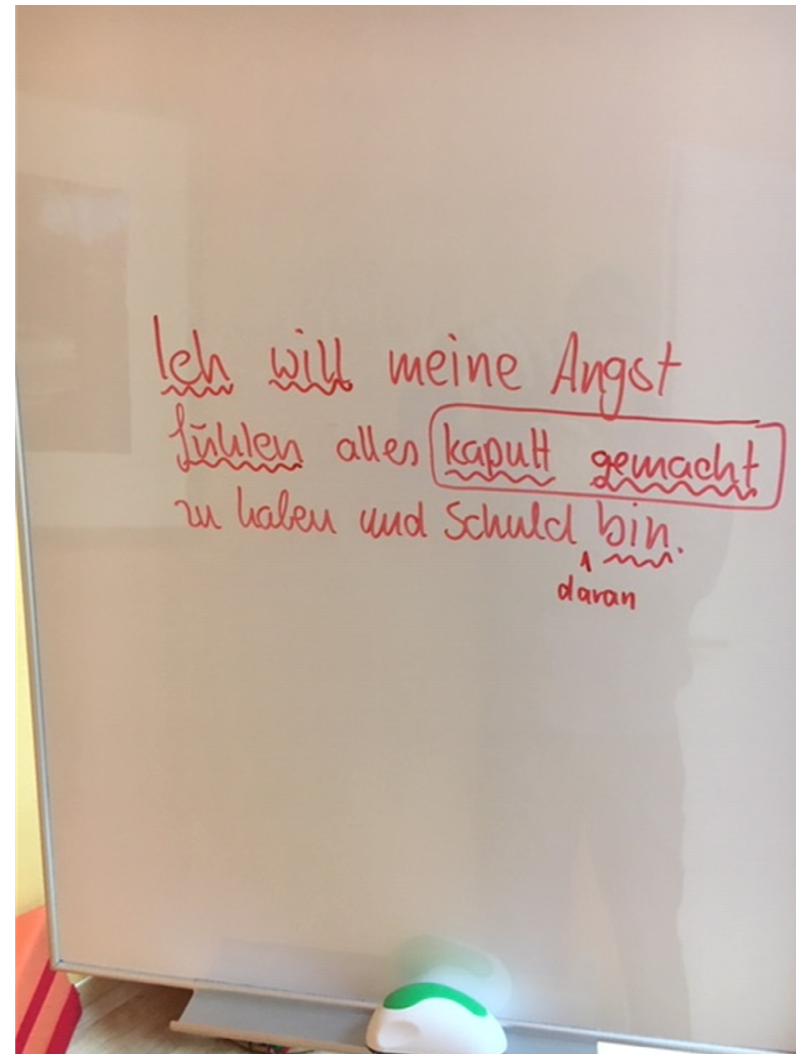 Ich will meine Angst
fühlen alles kaputt gemacht
zu haben und Schuld bin.
daran